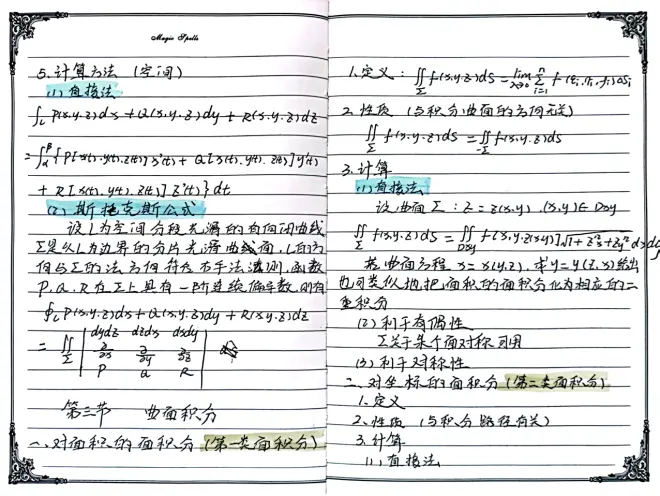 Magic Spells
5.计算方法 (空间)
(1) 直接法
∫_L P(x,y,z)dx + Q(x,y,z)dy + R(x,y,z)dz
= ∫_α^β { P[x(t),y(t),z(t)] x'(t) + Q[x(t),y(t),z(t)] y'(t)
+ R[x(t),y(t),z(t)] z'(t) } dt
(2) 斯托克斯公式
设 L 为空间分段光滑的有向闭曲线
Σ是以L为边界的分片光滑曲面, L的方
向与Σ的法方向符合右手法则, 函数
P, Q, R 在Σ上具有一阶连续偏导数, 则有
∮_L P(x,y,z)dx + Q(x,y,z)dy + R(x,y,z)dz
= ∬_Σ | dydz dzdx dxdy
∂/∂x ∂/∂y ∂/∂z
P Q R |
第三节 曲面积分
一、对面积的面积分 (第一类面积分)
1.定义: ∬_Σ f(x,y,z)dS = lim_{λ→0} Σ_{i=1}^n f(ξi,ηi,ζi)ΔSi
2.性质 (与积分曲面的方向无关)
∬_Σ f(x,y,z)dS = ∬_{-Σ} f(x,y,z)dS
3.计算
(1) 直接法
设曲面Σ: z = z(x,y), (x,y)∈Dxy
∬_Σ f(x,y,z)dS = ∬_{Dxy} f(x,y,z(x,y))√(1+z'x²+z'y²) dxdy
若曲面方程 x = x(y,z), 或 y = y(z,x) 给出
也可类似地把面积的面积分化为相应的二
重积分
(2) 利于有偶性
Σ关于某个面对称可用
(3) 利于对称性
二、对坐标的面积分 (第二类面积分)
1.定义
2.性质 (与积分路径有关)
3.计算
(1) 直接法